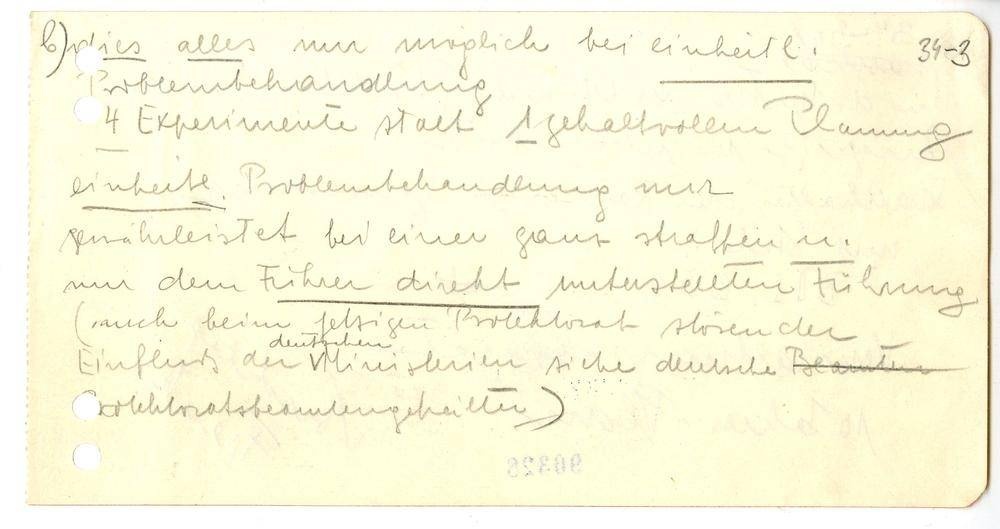 34-3
b) dies alles nur möglich bei einheitl.
Problembehandlung
4 Experimente statt 1 gehaltvollen Planung
einheitl. Problembehandlung nur
gewährleistet bei einer ganz straffen u.
nur dem Führer direkt unterstellten Führung
(auch beim jetzigen Protektorat störender
Einfluß der deutschen Ministerien siehe deutsche Beamten
90328